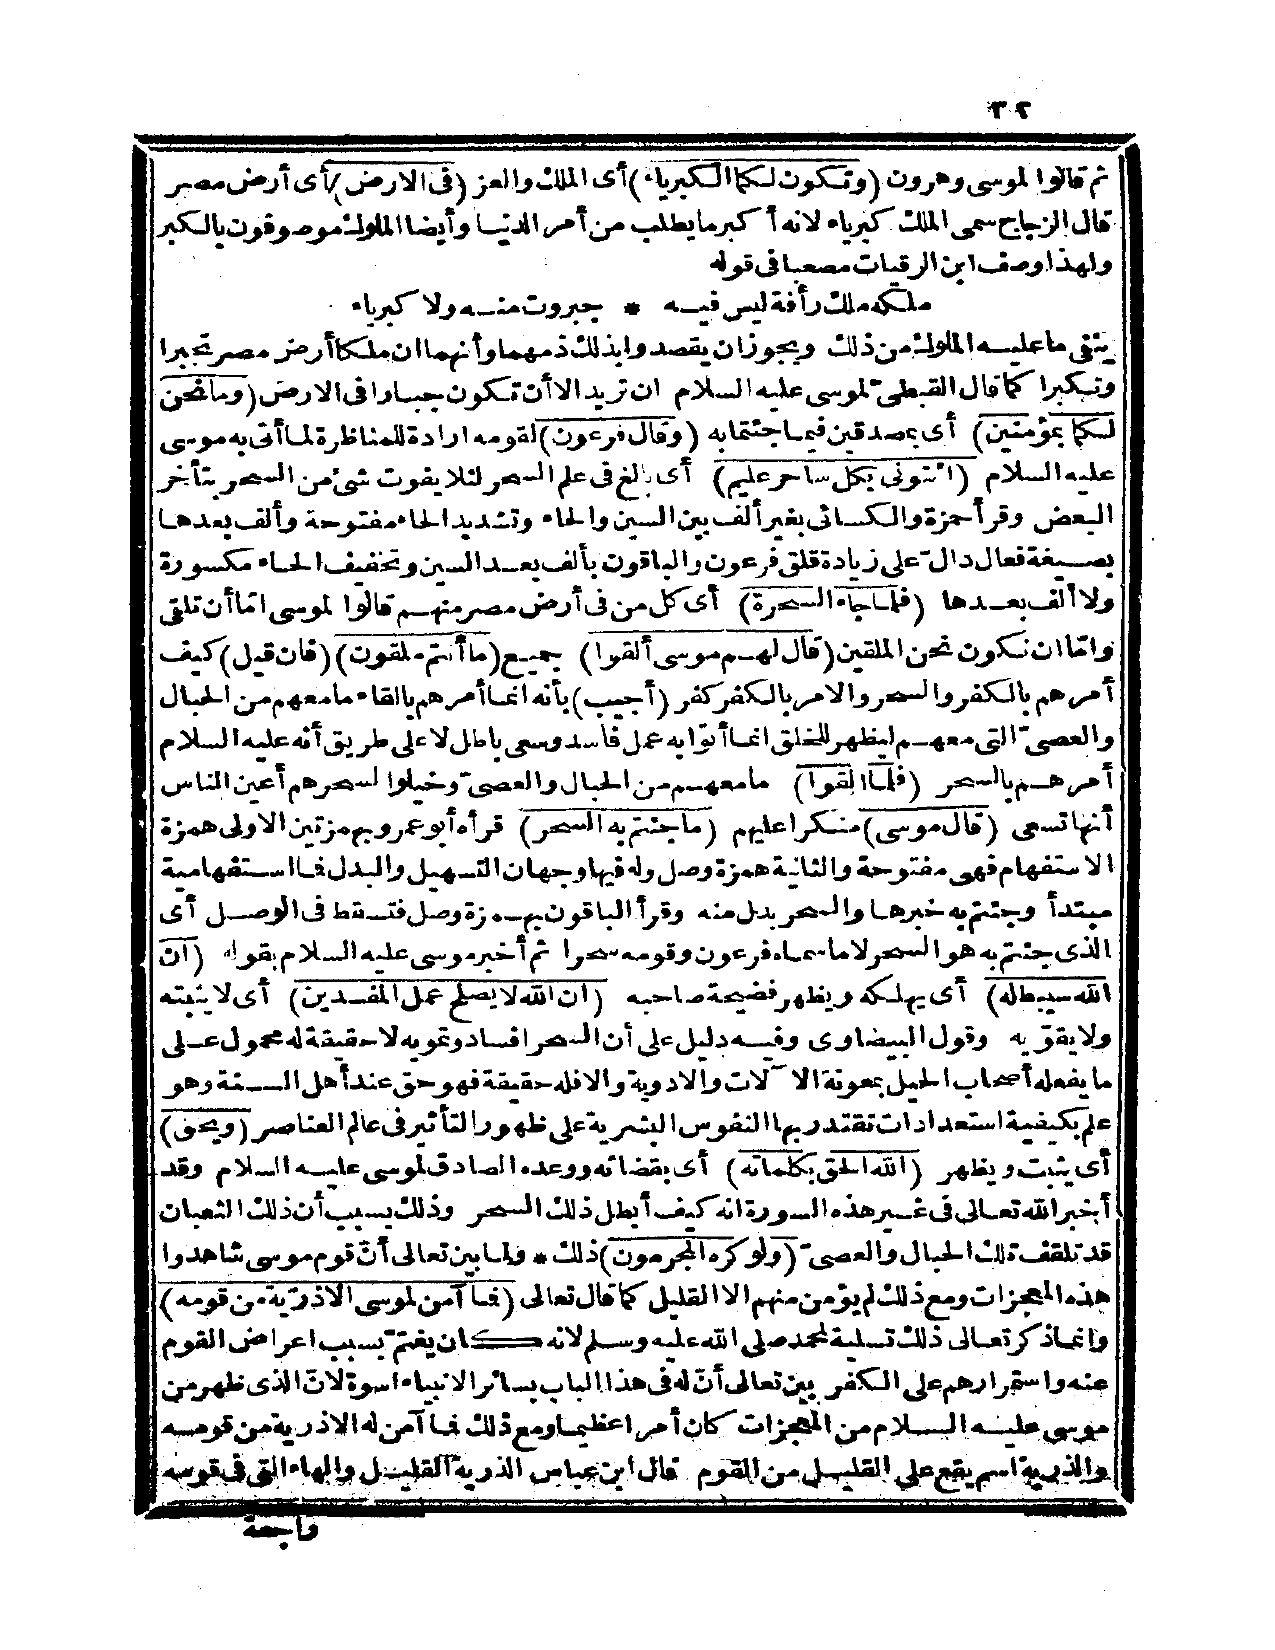 ٣٢
ثم قالوا لموسى وهرون (وتكون لكما الكبرياء) أى الملك والعز (فى الارض) أى أرض مصر
قال الزجاج سمى الملك كبرياء لانه أكبر ما يطلب من أمر الدنيا وأيضا الملوك موصوفون بالكبر
ولهذا وصف ابن الرقيات مصعبا فى قوله
ملكه ملك رأفة ليس فيه * جبروت منه ولا كبرياء
ينفى ما عليه الملوك من ذلك ويجوز ان يقصدوا بذلك ذمهما وأنهما ان ملكا أرض مصر تجبرا
وتكبرا كما قال القبطىّ لموسى عليه السلام ان تريد الا أن تكون جبارا فى الارض (وما نحن
لكما بمؤمنين) أى بمصدقين فيما جئتما به (وقال فرعون) لقومه ارادة للمناظرة لما أتى به موسى
عليه السلام (ائتونى بكل ساحر عليم) أى بالغ فى علم السحر لئلا يفوت شئ من السحر بتأخر
البعض وقرأ حمزة والكسائى بغير ألف بين السين والحاء وتشديد الحاء مفتوحة وألف بعدها
بصيغة فعال دالّ على زيادة قلق فرعون والباقون بألف بعد السين وتخفيف الحاء مكسورة
ولا ألف بعدها (فلما جاء السحرة) أى كل من فى أرض مصر منهم قالوا لموسى امّا أن تلقى
وامّا ان نكون نحن الملقين (قال لهم موسى ألقوا) جميع (ما أنتم ملقون) (فان قيل) كيف
أمرهم بالكفر والسحر والامر بالكفر كفر (أجيب) بأنه انما أمرهم بالقاء ما معهم من الحبال
والعصىّ التى معهم ليظهر للخلق انما أتوا به عمل فاسد وسعى باطل لا على طريق أنه عليه السلام
أمرهم بالسحر (فلما ألقوا) ما معهم من الحبال والعصىّ وخيلوا لسحرهم أعين الناس
أنها تسعى (قال موسى) منكرا عليهم (ما جئتم به السحر) قرأه أبو عمرو بهمزتين الاولى همزة
الاستفهام فهى مفتوحة والثانية همزة وصل وله فيها وجهان التسهيل والبدل فما استفهامية
مبتدأ وجئتم به خبرها والسحر بدل منه وقرأ الباقون بهمزة وصل فتسقط فى الوصل أى
الذى جئتم به هو السحر لا ما سماه فرعون وقومه سحرا ثم أخبر موسى عليه السلام بقوله (ان
الله سيبطله) أى يهلكه ويظهر فضيحة صاحبه (ان الله لا يصلح عمل المفسدين) أى لا يثبته
ولا يقوّيه وقول البيضاوى وفيه دليل على أن السحر افساد وتمويه لا حقيقة له محمول على
ما يفعله أصحاب الحيل بمعونة الآلات والادوية والا فله حقيقة فهو حق عند أهل السنة وهو
علم بكيفية استعدادات تقتدر بها النفوس البشرية على ظهور التأثير فى عالم العناصر (ويحق)
أى يثبت ويظهر (الله الحق بكلماته) أى بقضائه ووعده الصادق لموسى عليه السلام وقد
أخبر الله تعالى فى غير هذه السورة انه كيف أبطل ذلك السحر وذلك بسبب أن ذلك الثعبان
قد تلقف تلك الحبال والعصىّ (ولو كره المجرمون) ذلك * ولما بين تعالى أنّ قوم موسى شاهدوا
هذه المعجزات ومع ذلك لم يؤمن منهم الا القليل كما قال تعالى (فما آمن لموسى الا ذرّية من قومه)
وانما ذكر تعالى ذلك تسلية لمحمد صلى الله عليه وسلم لانه كان يغتمّ بسبب اعراض القوم
عنه واستمرارهم على الكفر بين تعالى أنّ له فى هذا الباب بسائر الانبياء اسوة لانّ الذى ظهر من
موسى عليه السلام من المعجزات كان أمرا عظيما ومع ذلك فما آمن له الا ذرية من قومه
والذرية اسم يقع على القليل من القوم قال ابن عباس الذرية القليل والهاء التى فى قومه
راجعة